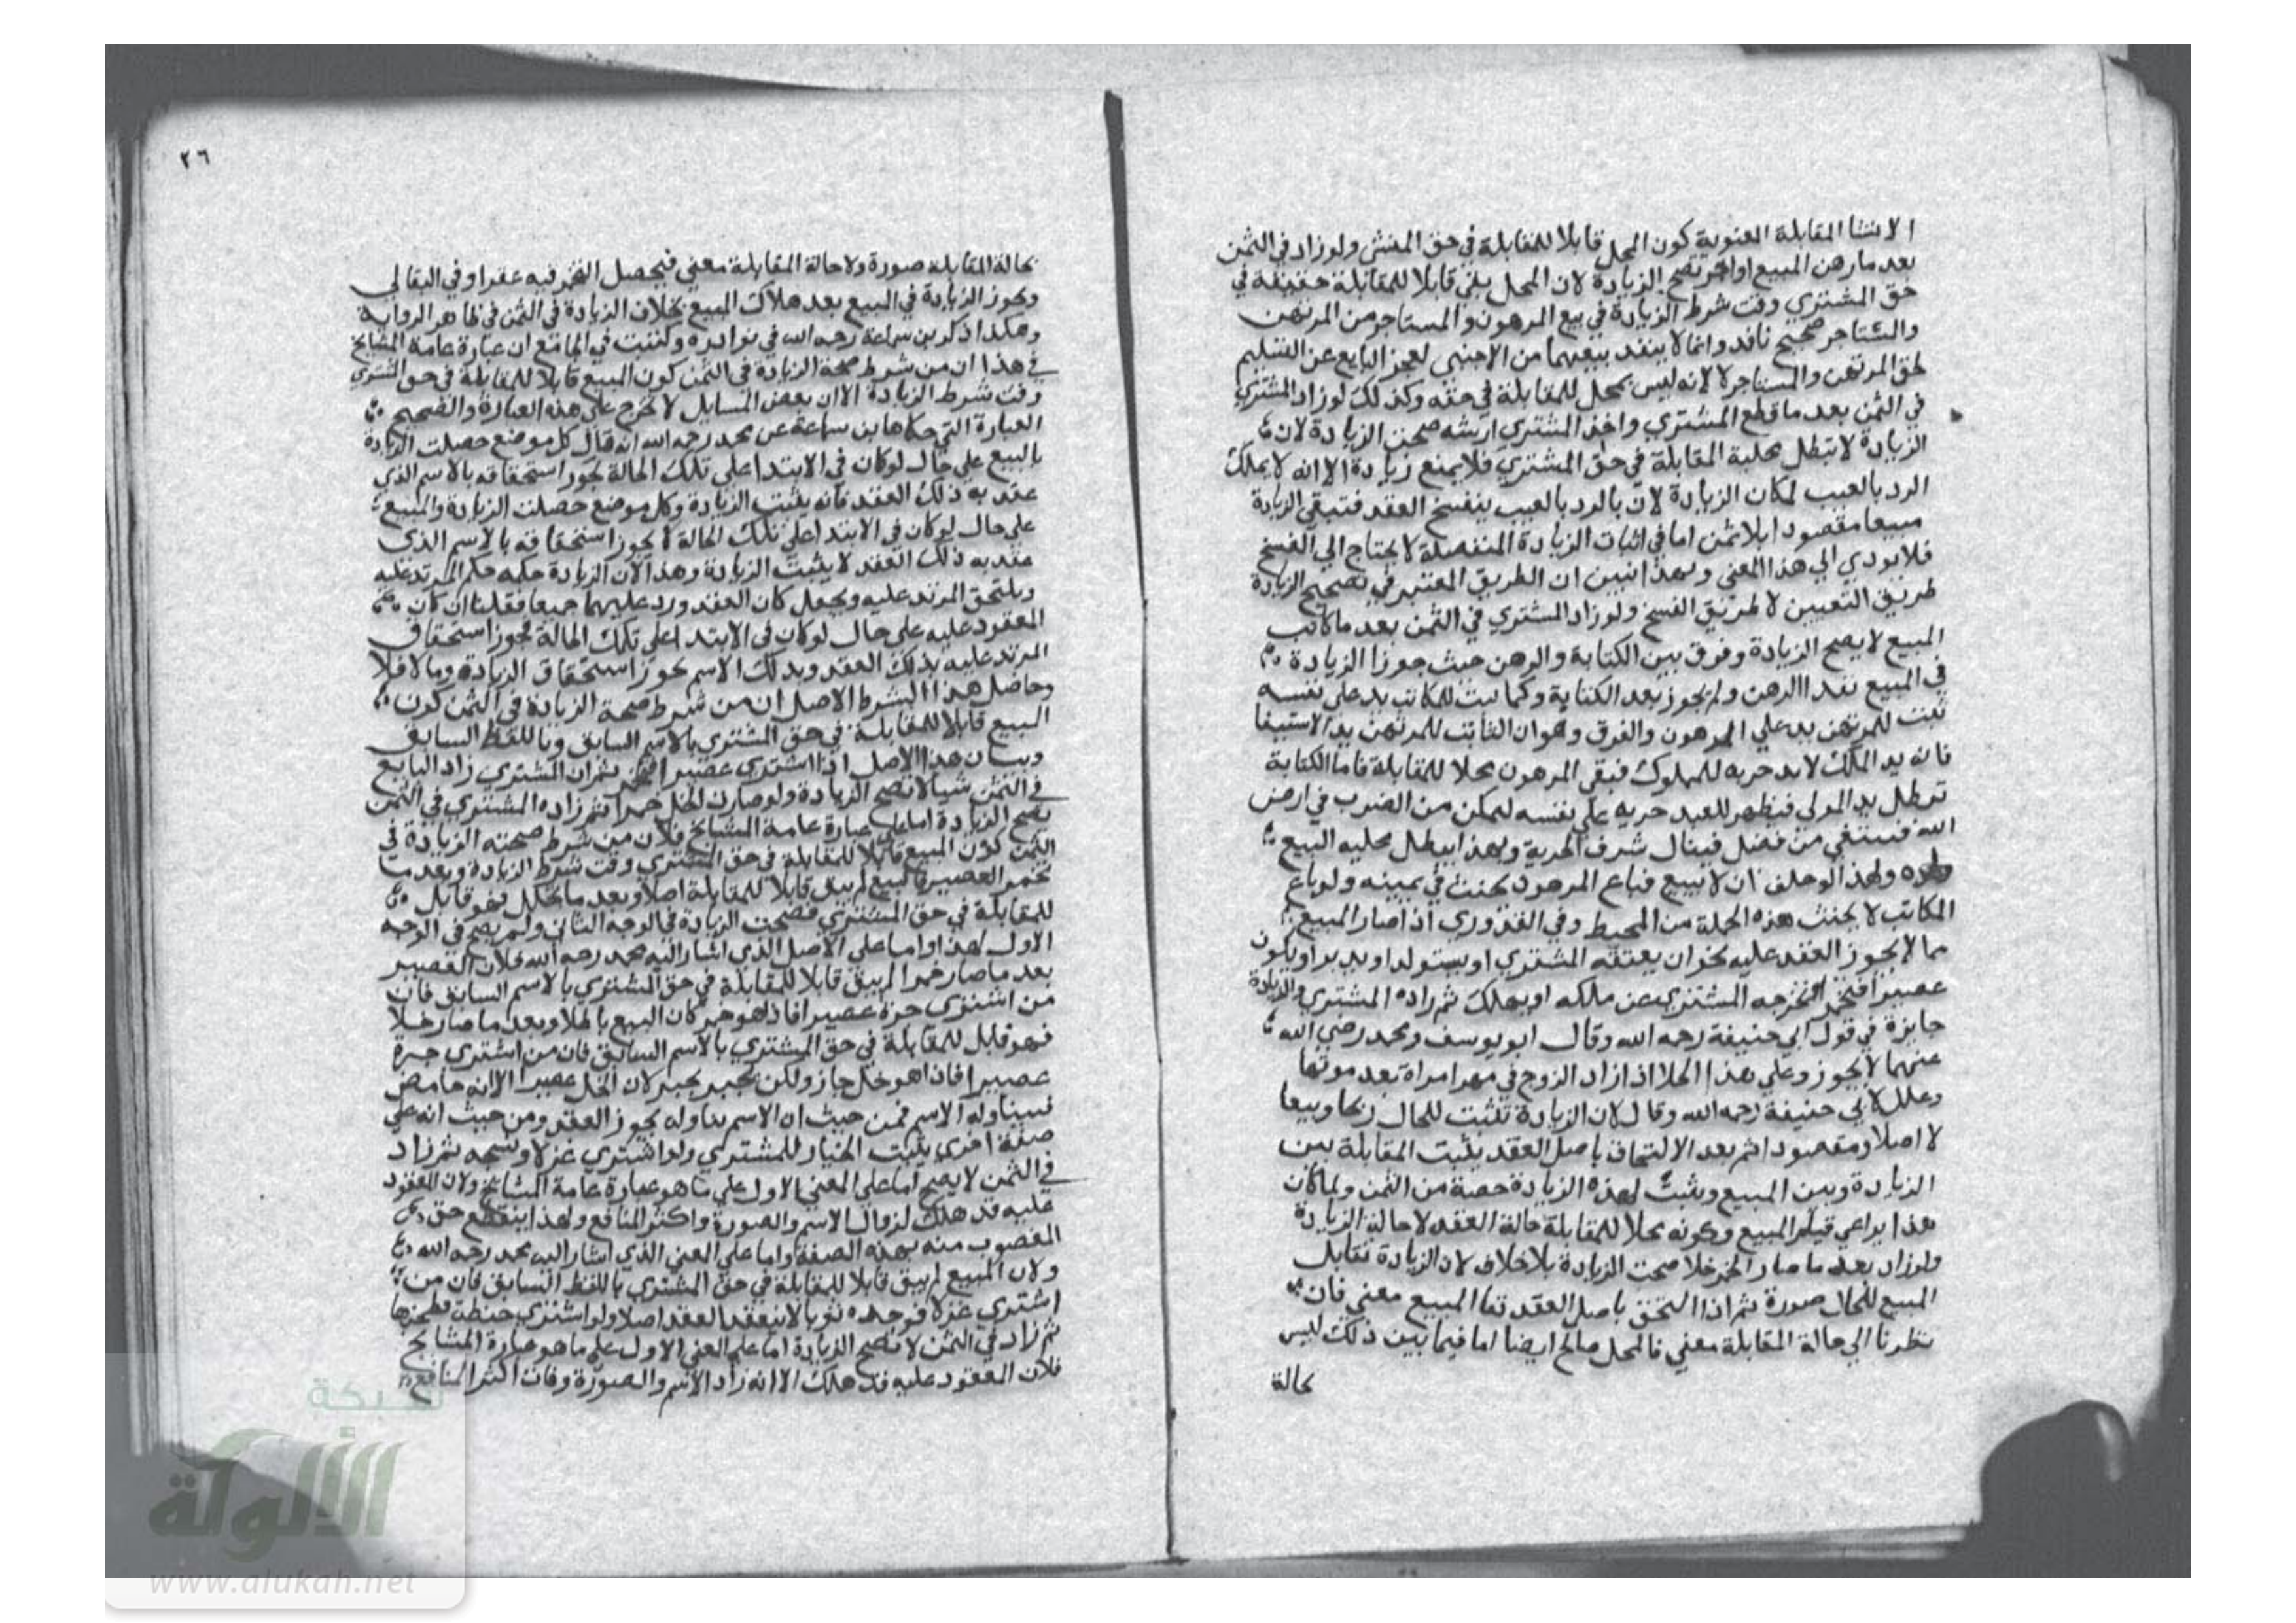 الانشا المقابلة المعنوية كون المحل قابلا للمقابلة في حق المنشى ولو زاد في الثمن
بعد ما رهن المبيع او اجر تصح الزيادة لان المحل بقى قابلا للمقابلة حقيقة في
حق المشتري وقت شرط الزيادة في بيع المرهون والمستاجر من المرتهن
والمستاجر صحيح نافد وانما لا ينفد بيعهما من الاجنبى لعجز البايع عن التسليم
لحق المرتهن والمستاجر لا لانه ليس بمحل للمقابلة في حقه وكذلك لو زاد المشتري
في الثمن بعد ما قطع المشتري واخذ المشتري ارشه صحت الزيادة لان
الزيادة لا تبطل محلية المقابلة في حق المشتري فلا يمنع زيادة الا انه لا يملك
الرد بالعيب لمكان الزيادة لان بالرد بالعيب ينفسخ العقد فتبقى الزيادة
مبيعا مقصودا بلا ثمن اما في اثبات الزيادة المنفصلة لا يحتاج الي الفسخ
فلا يودي الي هذا المعنى وبهذا تبين ان الطريق المعتبر في تصحيح الزيادة
طريق التعيين لا طريق الفسخ ولو زاد المشتري في الثمن بعد ما كاتب
المبيع لا يصح الزيادة وفرق بين الكتابة والرهن حيث جوزا الزيادة
في المبيع بعد الرهن ولم يجوز بعد الكتابة وكما يثبت للمكاتب يد على نفسه
يثبت للمرتهن يد علي المرهون والفرق وهو ان الثابت للمرتهن يد الاستيفا
فانه يد الملك لا يد حريه للمملوك فبقى المرهون محلا للمقابلة فاما الكتابة
تبطل يد المولى فيظهر للعبد حريه علي نفسه ليمكن من الضرب في ارض
الله فيبتغي من فضل فينال شرف الحرية وبهذا يبطل محليه البيع
ولهذا لو حلف ان لا يبيع فباع المرهون يحنث في يمينه ولو باع
المكاتب لا يحنث هذه الجملة من المحيط وفي القدوري اذا صار المبيع
مما لا يجوز العقد عليه نحو ان يعتقه المشتري او يستولد او يدبر او يكون
عصيرا فتخمر او يخرجه المشتري عن ملكه او يهلك ثم زاده المشتري والزيادة
جايزة في قول ابي حنيفة رحمه الله وقال ابو يوسف ومحمد رضي الله
عنهما لا يجوز وعلي هذا الخلا اذا زاد الزوج في مهر امراة بعد موتها
وعلل لابي حنيفة رحمه الله وقال لان الزيادة تثبت للحال ربحا وبيعا
لا اصلا ومقصودا ثم بعد الالتحاق باصل العقد يثبت المقابلة بين
الزيادة وبين المبيع ويثبت لهذه الزيادة حصة من الثمن ولما كان
هذا يراعي قيام المبيع وكونه محلا للمقابلة حالة العقد لا حالة الزيادة
ولو زاد بعد ما صار الخمر خلا صحت الزيادة بلا خلاف لان الزيادة تقابل
المبيع للحال صورة ثم اذا التحق باصل العقد تقا المبيع معني فان
نظرنا الي حالة المقابلة معني فالمحل صالح ايضا اما فيما بين ذلك ليس
بحالة
٢٦
بحالة المقابلة صورة ولا حالة المقابلة معنى فيحصل التخمر فيه عفوا وفي البقالي
ويجوز الزيادة في المبيع بعد هلاك المبيع بخلاف الزيادة في الثمن في ظاهر الرواية
وهكذا ذكر بن سماعة رحمه الله في نوادره وكتبت في الجامع ان عبارة عامة المشايخ
في هذا ان من شرط صحة الزيادة في الثمن كون المبيع قابلا للمقابلة في حق المشتري
وقت شرط الزيادة الا ان بعض المسايل لا تخرج على هذه العبارة والصحيح
العبارة التي حكاها بن سماعة عن محمد رحمه الله انه قال كل موضع حصلت الزيادة
بالبيع على حال لو كان في الابتدا على تلك الحالة يجوز استحقاقه بالاسم الذي
عقد به ذلك العقد فانه يثبت الزيادة وكل موضع حصلت الزيادة والمبيع
على حال لو كان في الابتدا على تلك الحالة لا يجوز استحقاقه بالاسم الذى
عقد به ذلك العقد لا يثبت الزيادة وهذا لان الزيادة حكمه حكم المزيد عليه
ويلتحق المزيد عليه ويجعل كان العقد ورد عليهما جميعا فقلنا ان كان
المعقود عليه على حال لو كان في الابتدا على تلك الحالة يجوز استحقاق
المزيد عليه بذلك العقد وبذلك الاسم يجوز استحقاق الزيادة وما لا فلا
وحاصل هذا الشرط الاصل ان من شرط صحة الزيادة في الثمن كون
المبيع قابلا للمقابلة في حق المشتري بالاسم السابق وباللفظ السابق
وبيان هذا الاصل اذا اشترى عصيرا فتخمر ثم ان المشتري زاد البايع
في الثمن شيا لا تصح الزيادة ولو صارت الخل خمرا ثم زاده المشتري في الثمن
تصح الزيادة اما على عبارة عامة المشايخ فلان من شرط صحته الزيادة في
الثمن كون المبيع قابلا للمقابلة في حق المشتري وقت شرط الزيادة وبعد ما
تخمر العصير فالبيع لم يبق قابلا للمقابلة اصلا وبعد ما تخلل فهو قابل
للمقابلة في حق المشتري فصحت الزيادة في الوجه الثانى ولم يصح في الوجه
الاول لهذا واما على الاصل الذي اشار اليه محمد رحمه الله فلان العصير
بعد ما صار خمرا لم يبق قابلا للمقابلة في حق المشتري بالاسم السابق فان
من اشترى جرة عصيرا فاذا هو خمر كان البيع باطلا وبعد ما صار خلا
فهو قابل للمقابلة في حق المشتري بالاسم السابق فان من اشترى جرة
عصيرا فاذا هو خل جاز ولكن يخير لان الخل عصير الا انه حامض
فيتناوله الاسم فمن حيث ان الاسم يتناوله يجوز العقد ومن حيث انه علي
صفة اخرى يثبت الخيار للمشتري ولو اشترى غزلا ونسجه ثم زاد
في الثمن لا يصح اما على المعنى الاول على ما هو عبارة عامة المشايخ ولان المعقود
عليه قد هلك لزوال الاسم والصورة واكثر المنافع ولهذا ينقطع حق
المغصوب منه بهذه الصفة واما على المعنى الذي اشار اليه محمد رحمه الله
ولان المبيع لم يبق قابلا للمقابلة في حق المشتري باللفظ السابق فان من
اشتري غزلا فوجده ثوبا لا ينعقد العقد اصلا ولو اشترى حنطة فطحنها
ثم زاد في الثمن لا تصح الزيادة اما على المعنى الاول على ما هو عبارة المشايخ
فلان المعقود عليه قد هلك الا انه زاد الاسم والصورة وفات اكثر المنافع
شبكة
الألوكة
www.alukah.net